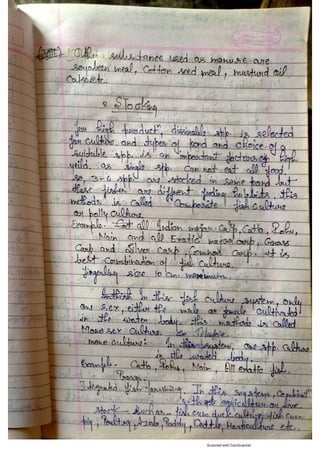 Other substance used as manure are
soyabean meal, Cotton seed meal, mustard oil
cake etc.
2. Stocking
for high product", disirable spp. is selected
for culture and types of pond and choice of a
suitable spp. is an important factors of high
yeild. as single spp. can not eat all food,
so, 3-4 sppt are stocked in same pond but
these fishes are different feeding habits this
methods is called "Composite fish culture
or polly culture.
Example- Cat all Indian major carp, Catla, Rohu,
Nain and all Exotic major carp, Grass
Carp and Silver carp, Common carp. it is
best combination of fish culture.
fingerling size 10 cm. maximum.
In this fish culture system, only
one sex, either the male or female cultivated
in the water body this methods is called
Mono sex culture. Telapia.
mono culture: In this system, one spp. culture
in the water body.
Example- Catla, Rohu, Nain, All exotic fish
Prawn.
Integrated fish farming. In this system, Combinat"
with agriculture or live
stock such as - fish cum duck culture, fish cum
pig, Poultry, Paddy, Cattle, Horticulture etc.
Scanned with CamScanner